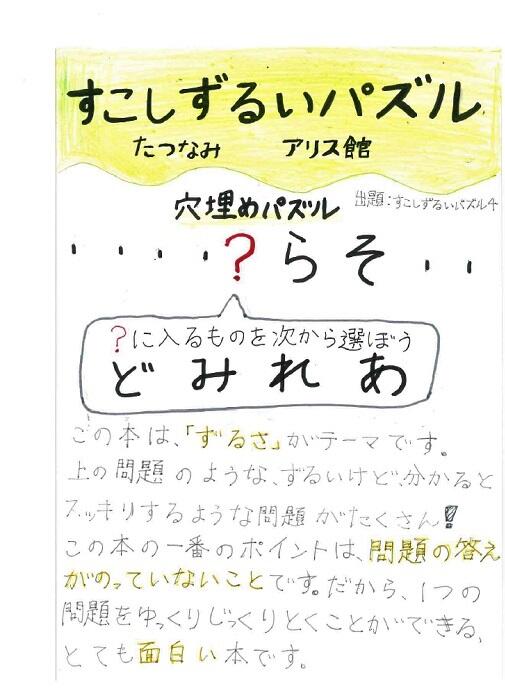 すこしずるいパズル
たつなみ アリス館
穴埋めパズル 出題:すこしずるいパズル4
・・・・?らそ・・
?に入るものを次から選ぼう
ど み れ あ
この本は、「ずるさ」がテーマです。
上の問題のような、ずるいけど分かると
スッキリするような問題がたくさん!
この本の一番のポイントは、問題の答え
がのっていないことです。だから、1つの
問題をゆっくりじっくりとくことができる、
とても面白い本です。